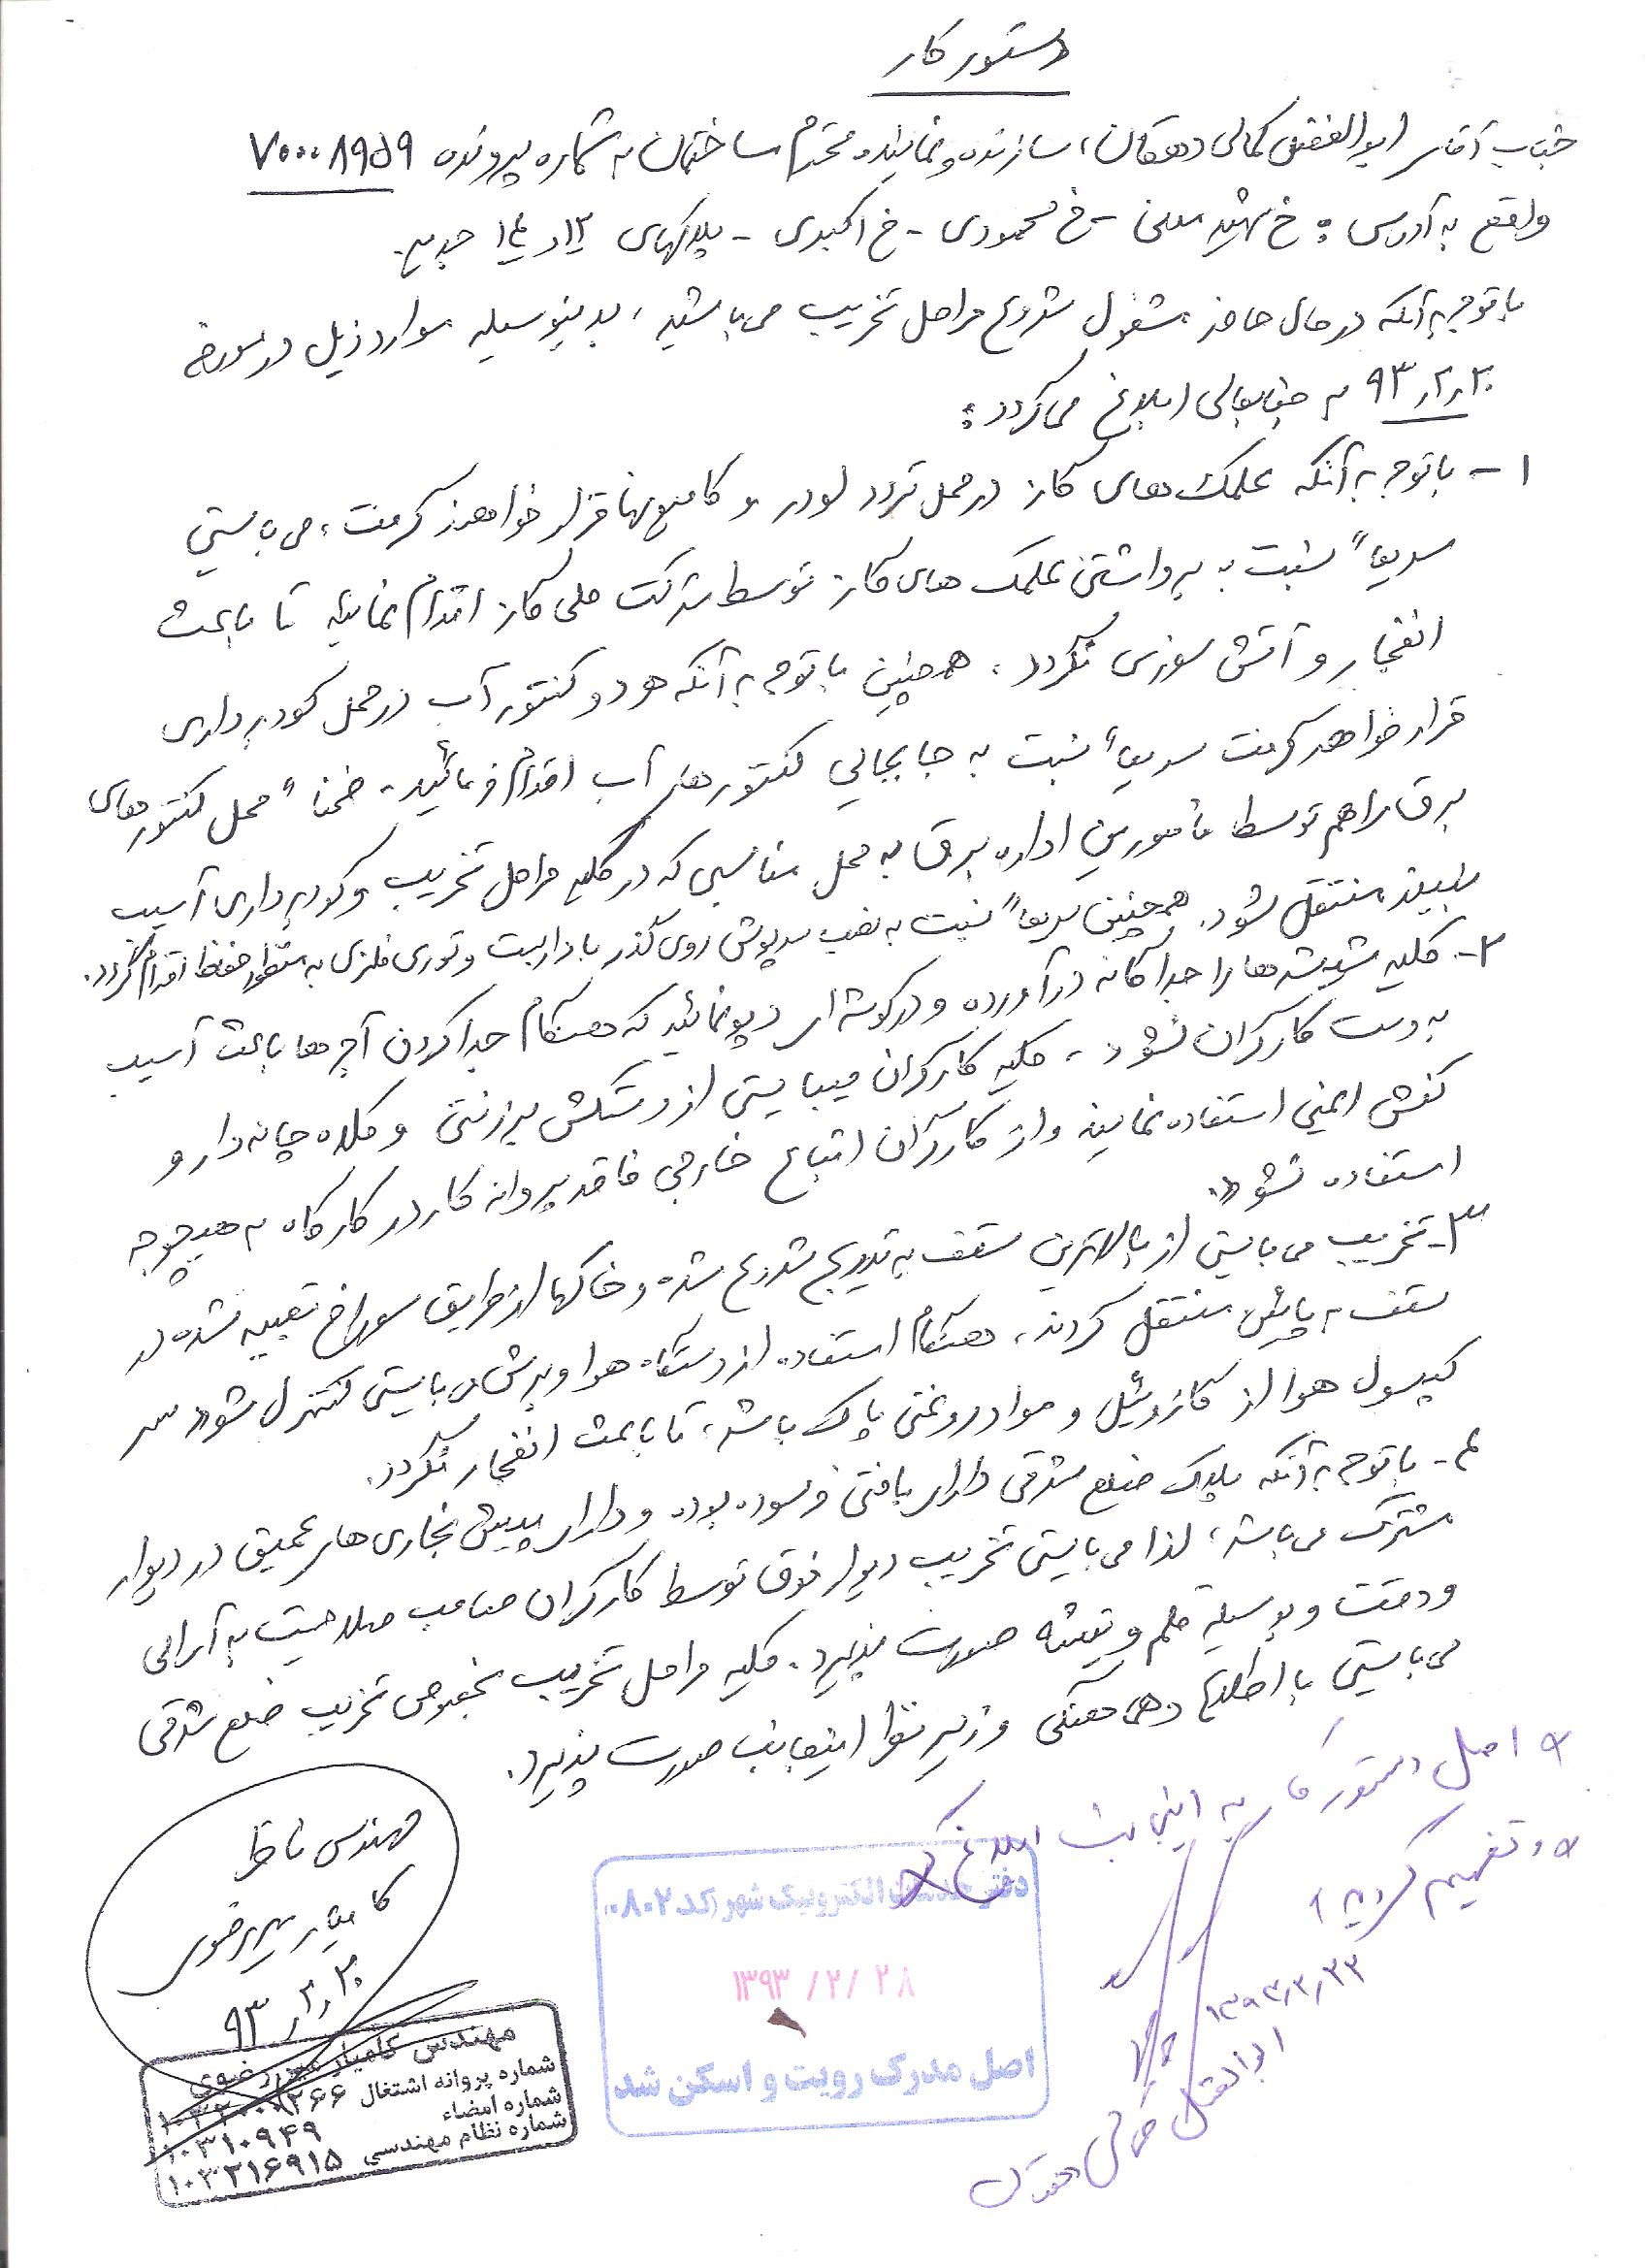 دستور کار
جناب آقای ابوالفضل کمالی دهقان، سازنده و نماینده محترم ساختمان به شماره پرونده ۷۰۰۰۸۹۵۹
واقع به آدرس : خ شهید معینی - خ محمودی - خ اکبری - پلاکهای ۱۲ و ۱۴ جدید.
با توجه به آنکه در حال حاضر مشغول شروع مراحل تخریب می باشید، بدینوسیله موارد ذیل در مورخه
۹۳٫۲٫۲۰ به جنابعالی ابلاغ می گردد :
۱- با توجه به آنکه علمک های گاز در محل تردد لودر و کامیونها قرار خواهند گرفت، می بایستی
سریعاً نسبت به برداشتن علمک های گاز توسط شرکت ملی گاز اقدام نمائید تا باعث
انفجار و آتش سوزی نگردد، همچنین با توجه به آنکه هر دو کنتور آب در محل گودبرداری
قرار خواهد گرفت سریعاً نسبت به جابجایی کنتورهای آب اقدام فرمائید. ضمناً محل کنتورهای
برق را هم توسط مأمورین اداره برق به محل مناسبی که در کلیه مراحل تخریب و گودبرداری آسیب
نبیند منتقل شود. همچنین سریعاً نسبت به نصب سرپوش روی گذر با داربست و توری فلزی به منظور حفاظ اقدام گردد.
۲- کلیه شیشه ها را جداگانه درآورده و در گوشه ای دپو نمائید که هنگام جدا کردن آجرها باعث آسیب
به دست کارگران نشود، کلیه کارگران میبایستی از دستکش برزنتی و کلاه چانه دار و
کفش ایمنی استفاده نمایند و از کارگران اتباع خارجی فاقد پروانه کار در کارگاه به هیچوجه
استفاده نشود.
۳- تخریب می بایستی از بالاترین سقف به تدریج شروع شده و خاکها از طریق سوراخ تعبیه شده در
سقف به پائین منتقل گردند، هنگام استفاده از دستگاه هوا و برش می بایستی کنترل شود سر
کپسول هوا از گازوئیل و مواد روغنی پاک باشد، تا باعث انفجار نگردد.
۴- با توجه به آنکه پلاک ضلع شرقی دارای بافتی فرسوده بوده و دارای پیش بخاری های عمیق در دیوار
مشترک می باشد، لذا می بایستی تخریب دیوار فوق توسط کارگران صاحب صلاحیت به آرامی
و دقت و بوسیله قلم و تیشه صورت پذیرد. کلیه مراحل تخریب بخصوص تخریب ضلع شرقی
می بایستی با اطلاع و هماهنگی و زیر نظر اینجانب صورت پذیرد.
مهندس ناظر
کامیار میررضوی
۹۳٫۲٫۲۰
مهندس کامیار میررضوی
شماره پروانه اشتغال
شماره امضاء ۱۰۳۱۰۹۴۹
شماره نظام مهندسی ۱۰۳۲۱۶۹۱۵
دفتر خدمات الکترونیک شهر (کد ۸۰۲)
۱۳۹۳/۲/۲۸
اصل مدرک رویت و اسکن شد
اصل دستور کار به اینجانب ابلاغ
و تفهیم گردید
۱۳۹۳٫۲٫۲۳
ابوالفضل کمالی دهقان